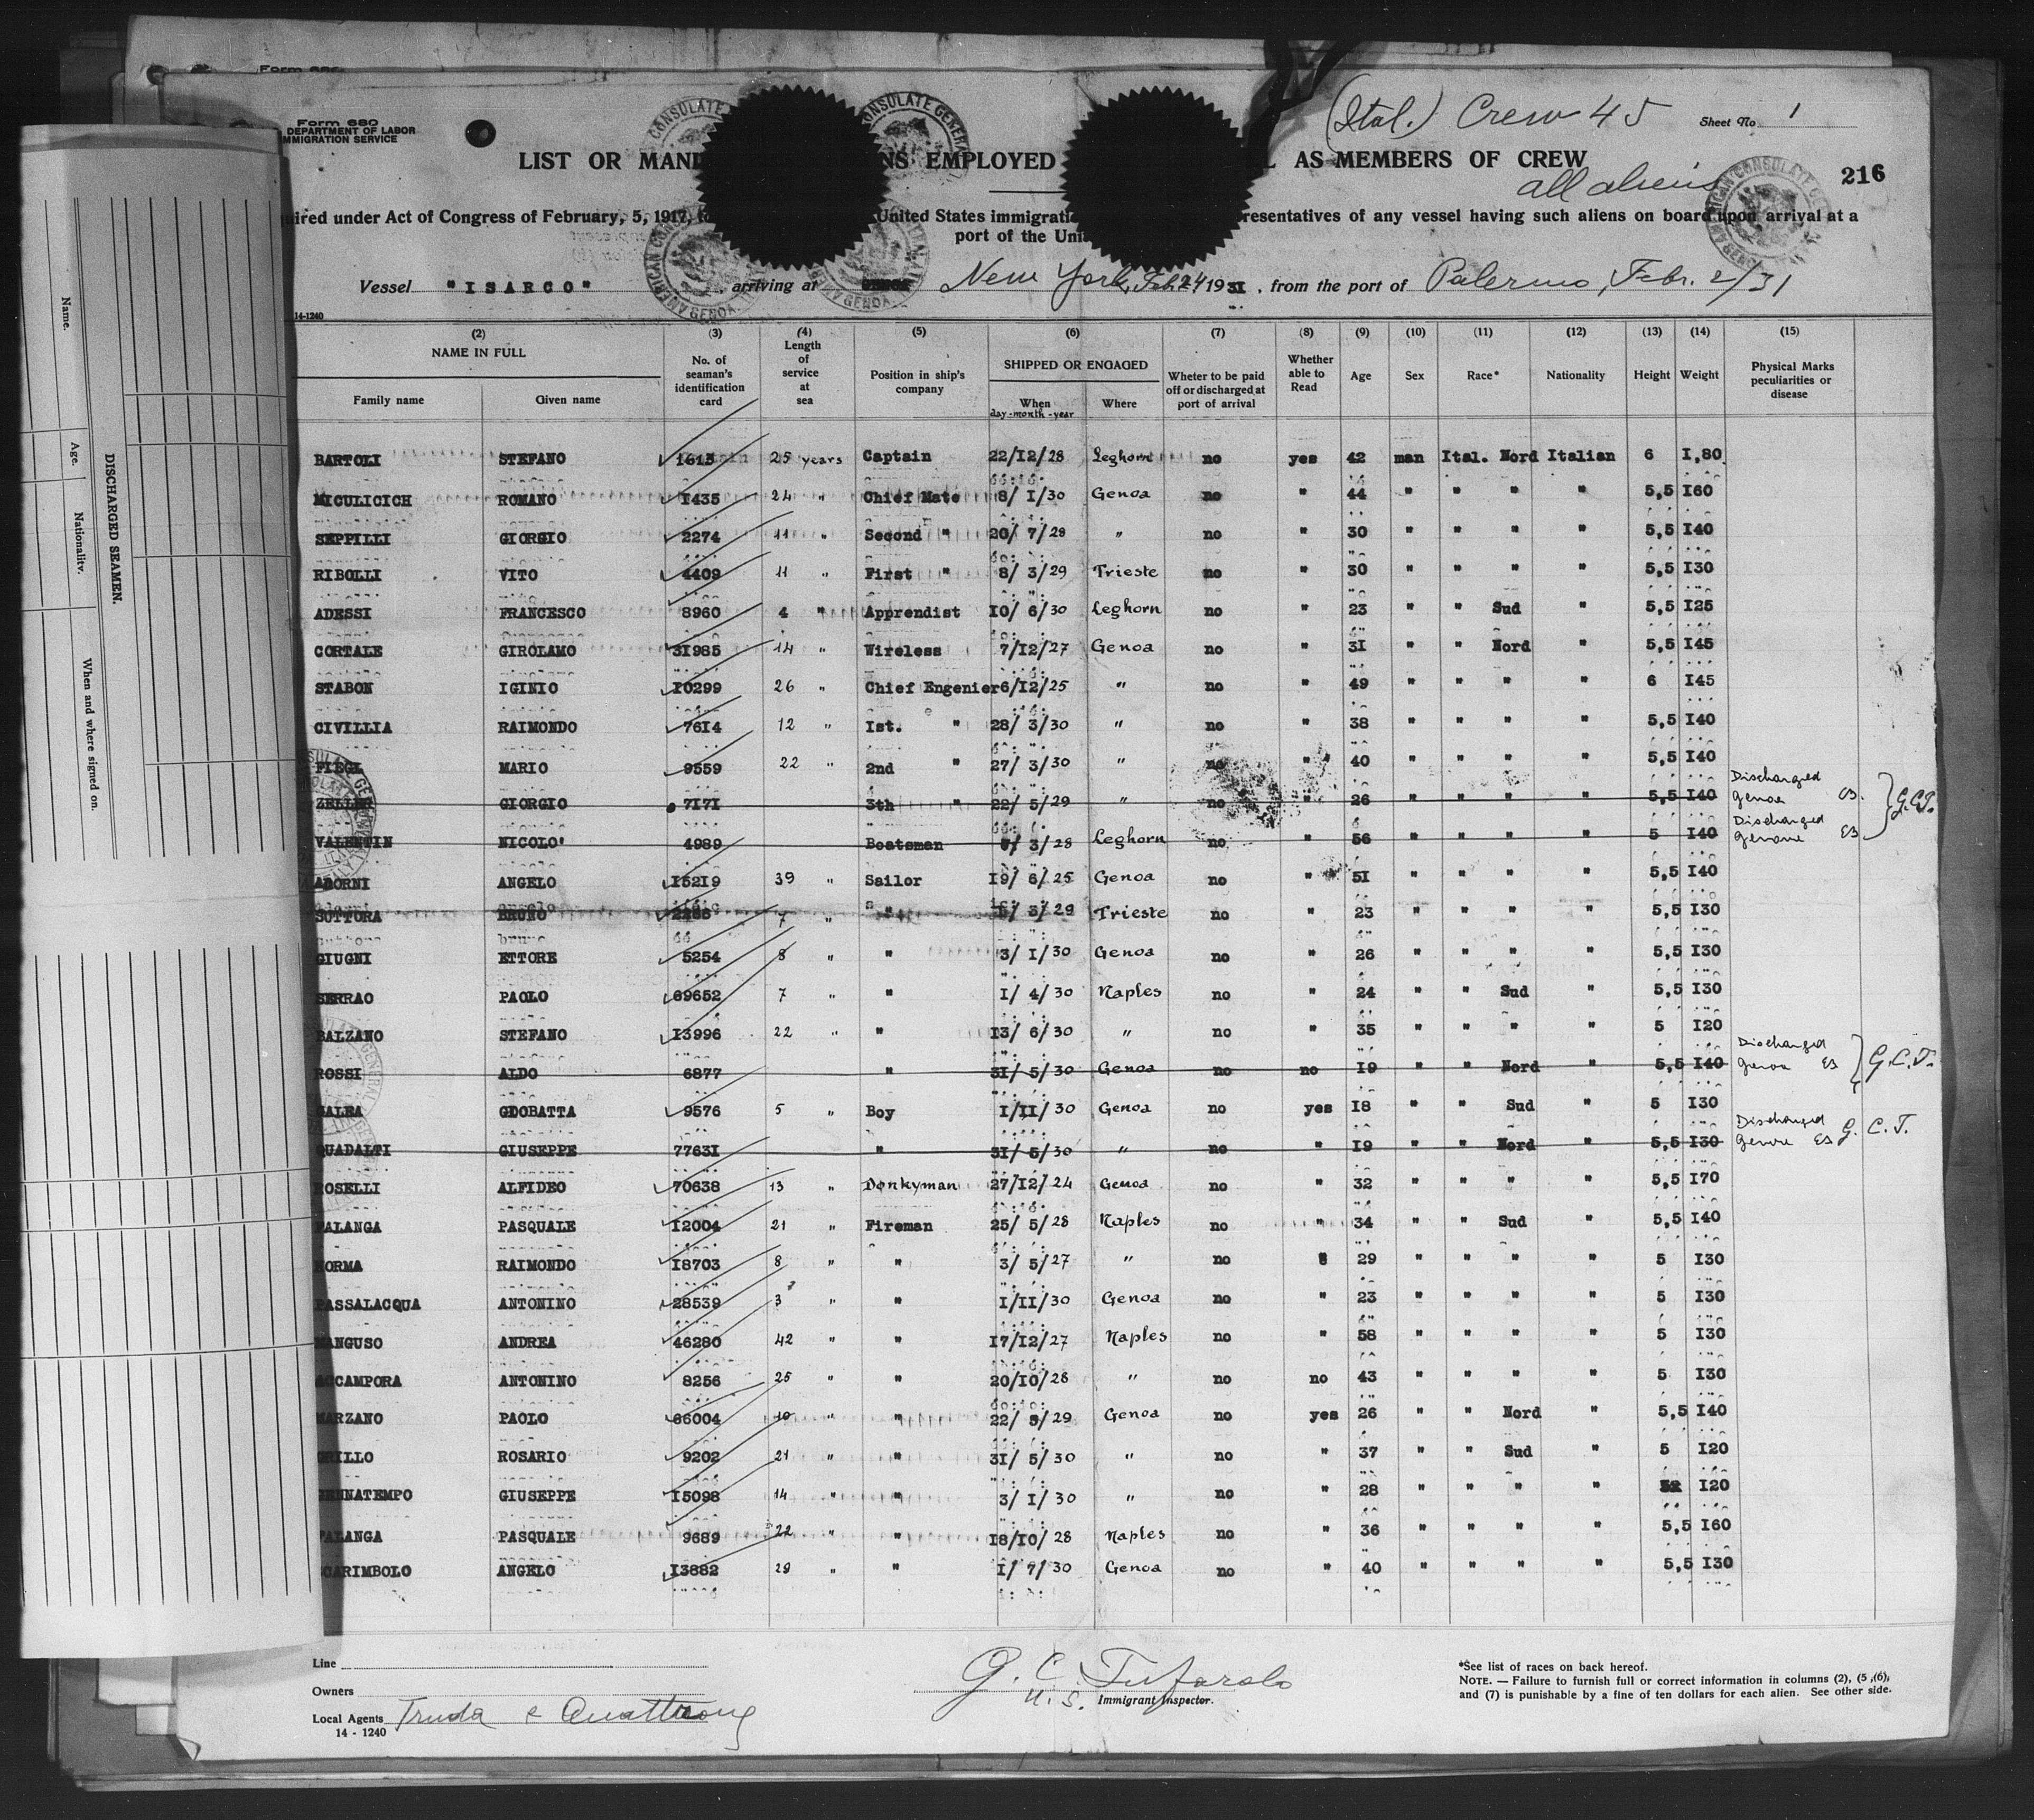 Form 680
DEPARTMENT OF LABOR
IMMIGRATION SERVICE
(Ital.) Crew 45
Sheet No 1
LIST OR MANI NS EMPLOYED L AS MEMBERS OF CREW
all aliens
216
uired under Act of Congress of February, 5, 1917, to United States immigratio resentatives of any vessel having such aliens on board upon arrival at a
port of the Unit
Vessel "ISARCO" arriving at New York, Feb. 24 1931, from the port of Palermo, Febr. 2/31
14-1240
(2) (3) (4) (5) (6) (7) (8) (9) (10) (11) (12) (13) (14) (15)
NAME IN FULL
Family name Given name
No. of seaman's identification card
Length of service at sea
Position in ship's company
SHIPPED OR ENGAGED
When day-month-year Where
Wheter to be paid off or discharged at port of arrival
Whether able to Read
Age Sex Race* Nationality Height Weight
Physical Marks peculiarities or disease
BARTOLI STEFANO 1613 25 years Captain 22/12/28 Leghorn no yes 42 man Ital. Nord Italian 6 I,80
MICULICICH ROMANO I435 24 " Chief Mate 8/ I/30 Genoa no " 44 " " " " 5,5 I60
SEPPILLI GIORGIO 2274 11 " Second " 20/ 7/28 " no " 30 " " " " 5,5 I40
RIBOLLI VITO 4409 11 " First " 8/ 3/29 Trieste no " 30 " " " " 5,5 I30
ADESSI FRANCESCO 8960 4 " Apprendist I0/ 6/30 Leghorn no " 23 " " Sud " 5,5 I25
CORTALE GIROLAMO 3I985 14 " Wireless 7/I2/27 Genoa no " 3I " " Nord " 5,5 I45
STABON IGINIO I0299 26 " Chief Engenier 6/I2/25 " no " 49 " " " " 6 I45
CIVILLIA RAIMONDO 76I4 12 " Ist. " 28/ 3/30 " no " 38 " " " " 5,5 I40
MARIO 9559 22 " 2nd " 27/ 3/30 " no " 40 " " " " 5,5 I40
GIORGIO 7I7I 3th " 22/ 5/29 " no " 26 " " " " 5,5 I40 Discharged Genoa
VALENTIN NICOLO' 4989 Boatsman 3/28 Leghorn no " 56 " " " " 5 I40 Discharged Genoa
G.C.T.
ADORNI ANGELO I52I9 39 " Sailor I9/ 6/25 Genoa no " 5I " " " " 5,5 I40
SUTTORA BRUNO 7 " " 3/29 Trieste no " 23 " " " " 5,5 I30
GIUGNI ETTORE 5254 8 " " 3/ I/30 Genoa no " 26 " " " " 5,5 I30
SERRAO PAOLO 69652 7 " " I/ 4/30 Naples no " 24 " " Sud " 5,5 I30
BALZANO STEFANO I3996 22 " " I3/ 6/30 " no " 35 " " " " 5 I20
ROSSI ALDO 6877 " 3I/ 5/30 Genoa no no I9 " " Nord " 5,5 I40 Discharged Genoa G.C.T.
GALEA GDOBATTA 9576 5 " Boy I/II/30 Genoa no yes I8 " " Sud " 5 I30
QUADALTI GIUSEPPE 7763I " 3I/ 5/30 " no " I9 " " Nord " 5,5 I30 Discharged Genoa G.C.T.
ROSELLI ALFIDEO 70638 13 " Donkyman 27/I2/24 Genoa no " 32 " " " " 5,5 I70
PALANGA PASQUALE I2004 21 " Fireman 25/ 5/28 Naples no " 34 " " Sud " 5,5 I40
RAIMONDO I8703 8 " " 3/ 5/27 " no " 29 " " " " 5 I30
PASSALACQUA ANTONINO 28539 3 " " I/II/30 Genoa no " 23 " " " " 5 I30
MANGUSO ANDREA 46280 42 " " I7/I2/27 Naples no " 58 " " " " 5 I30
ACCAMPORA ANTONINO 8256 25 " " 20/I0/28 " no no 43 " " " " 5 I30
MARZANO PAOLO 66004 10 " " 22/ 5/29 Genoa no yes 26 " " Nord " 5,5 I40
GRILLO ROSARIO 9202 21 " " 3I/ 5/30 " no " 37 " " Sud " 5 I20
GENNATEMPO GIUSEPPE I5098 14 " " 3/ I/30 " no " 28 " " " " I20
PALANGA PASQUALE 9689 22 " " I8/I0/28 Naples no " 36 " " " " 5,5 I60
SCARIMBOLO ANGELO I3882 29 " " I/ 7/30 Genoa no " 40 " " " " 5,5 I30
Line
Owners
Local Agents Truda & Quattrone
14 - 1240
G. C. Tufarolo
U. S. Immigrant Inspector.
*See list of races on back hereof.
NOTE. — Failure to furnish full or correct information in columns (2), (5,(6),
and (7) is punishable by a fine of ten dollars for each alien. See other side.
DISCHARGED SEAMEN.
Name. Age. Nationality. When and where signed on.
AMERICAN CONSULATE GENERAL GENOA